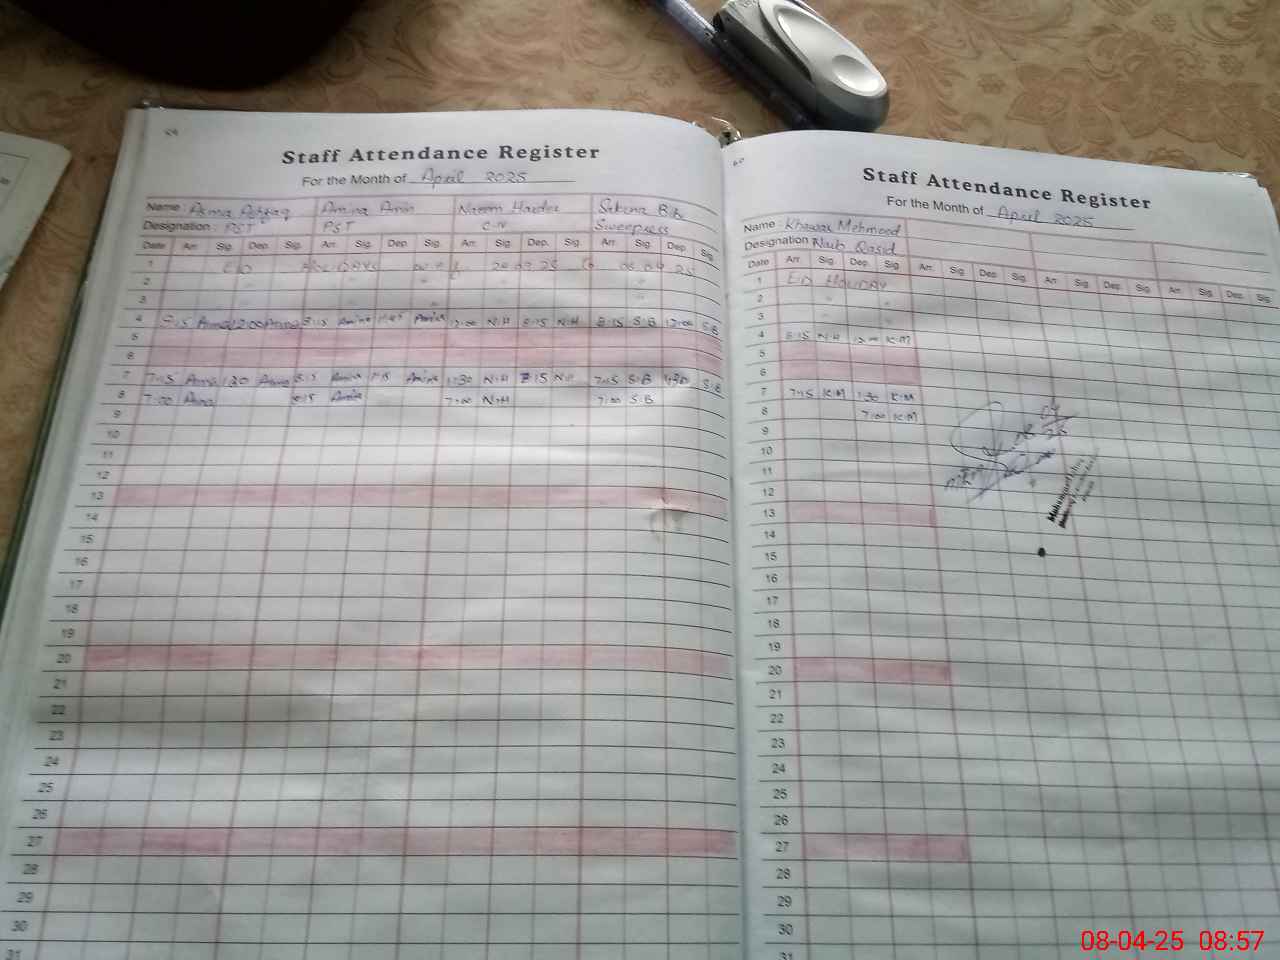 Staff Attendance Register
For the Month of April 2025
Name : Asma Amina Amin Naeem Haider Sakina Bibi
Designation : PST PST C-IV Sweepress
Date Arr. Sig. Dep. Sig. Arr. Sig. Dep. Sig. Arr. Sig. Dep. Sig. Arr. Sig. Dep. Sig.
1 EID HOLIDAYS
2
3
4 8:15 Asma 12:00 Asma 8:15 Amina Amina 12:00 N.H 8:15 N.H 8:15 S.B 12:00 S.B
5
6
7 7:45 Asma 1:30 Asma Amina Amina 1:30 N.H 8:15 N.H 7:45 S.B 1:30 S.B
8 7:00 Asma 8:15 Amina 7:00 N.H 7:00 S.B
9
10
11
12
13
14
15
16
17
18
19
20
21
22
23
24
25
26
27
28
29
30
31
60
Staff Attendance Register
For the Month of April 2025
Name : Khawar Mehmood
Designation Naib Qasid
Date Arr. Sig. Dep. Sig. Arr. Sig. Dep. Sig. Arr. Sig. Dep. Sig. Arr. Sig. Dep. Sig.
1 EID HOLIDAY
2
3
4 8:15 N.H 12:00 K.M
5
6
7 7:45 K.M 1:30 K.M
8 7:00 K.M
9
10
11
12
13
14
15
16
17
18
19
20
21
22
23
24
25
26
27
28
29
30
31
08-04-25 08:57